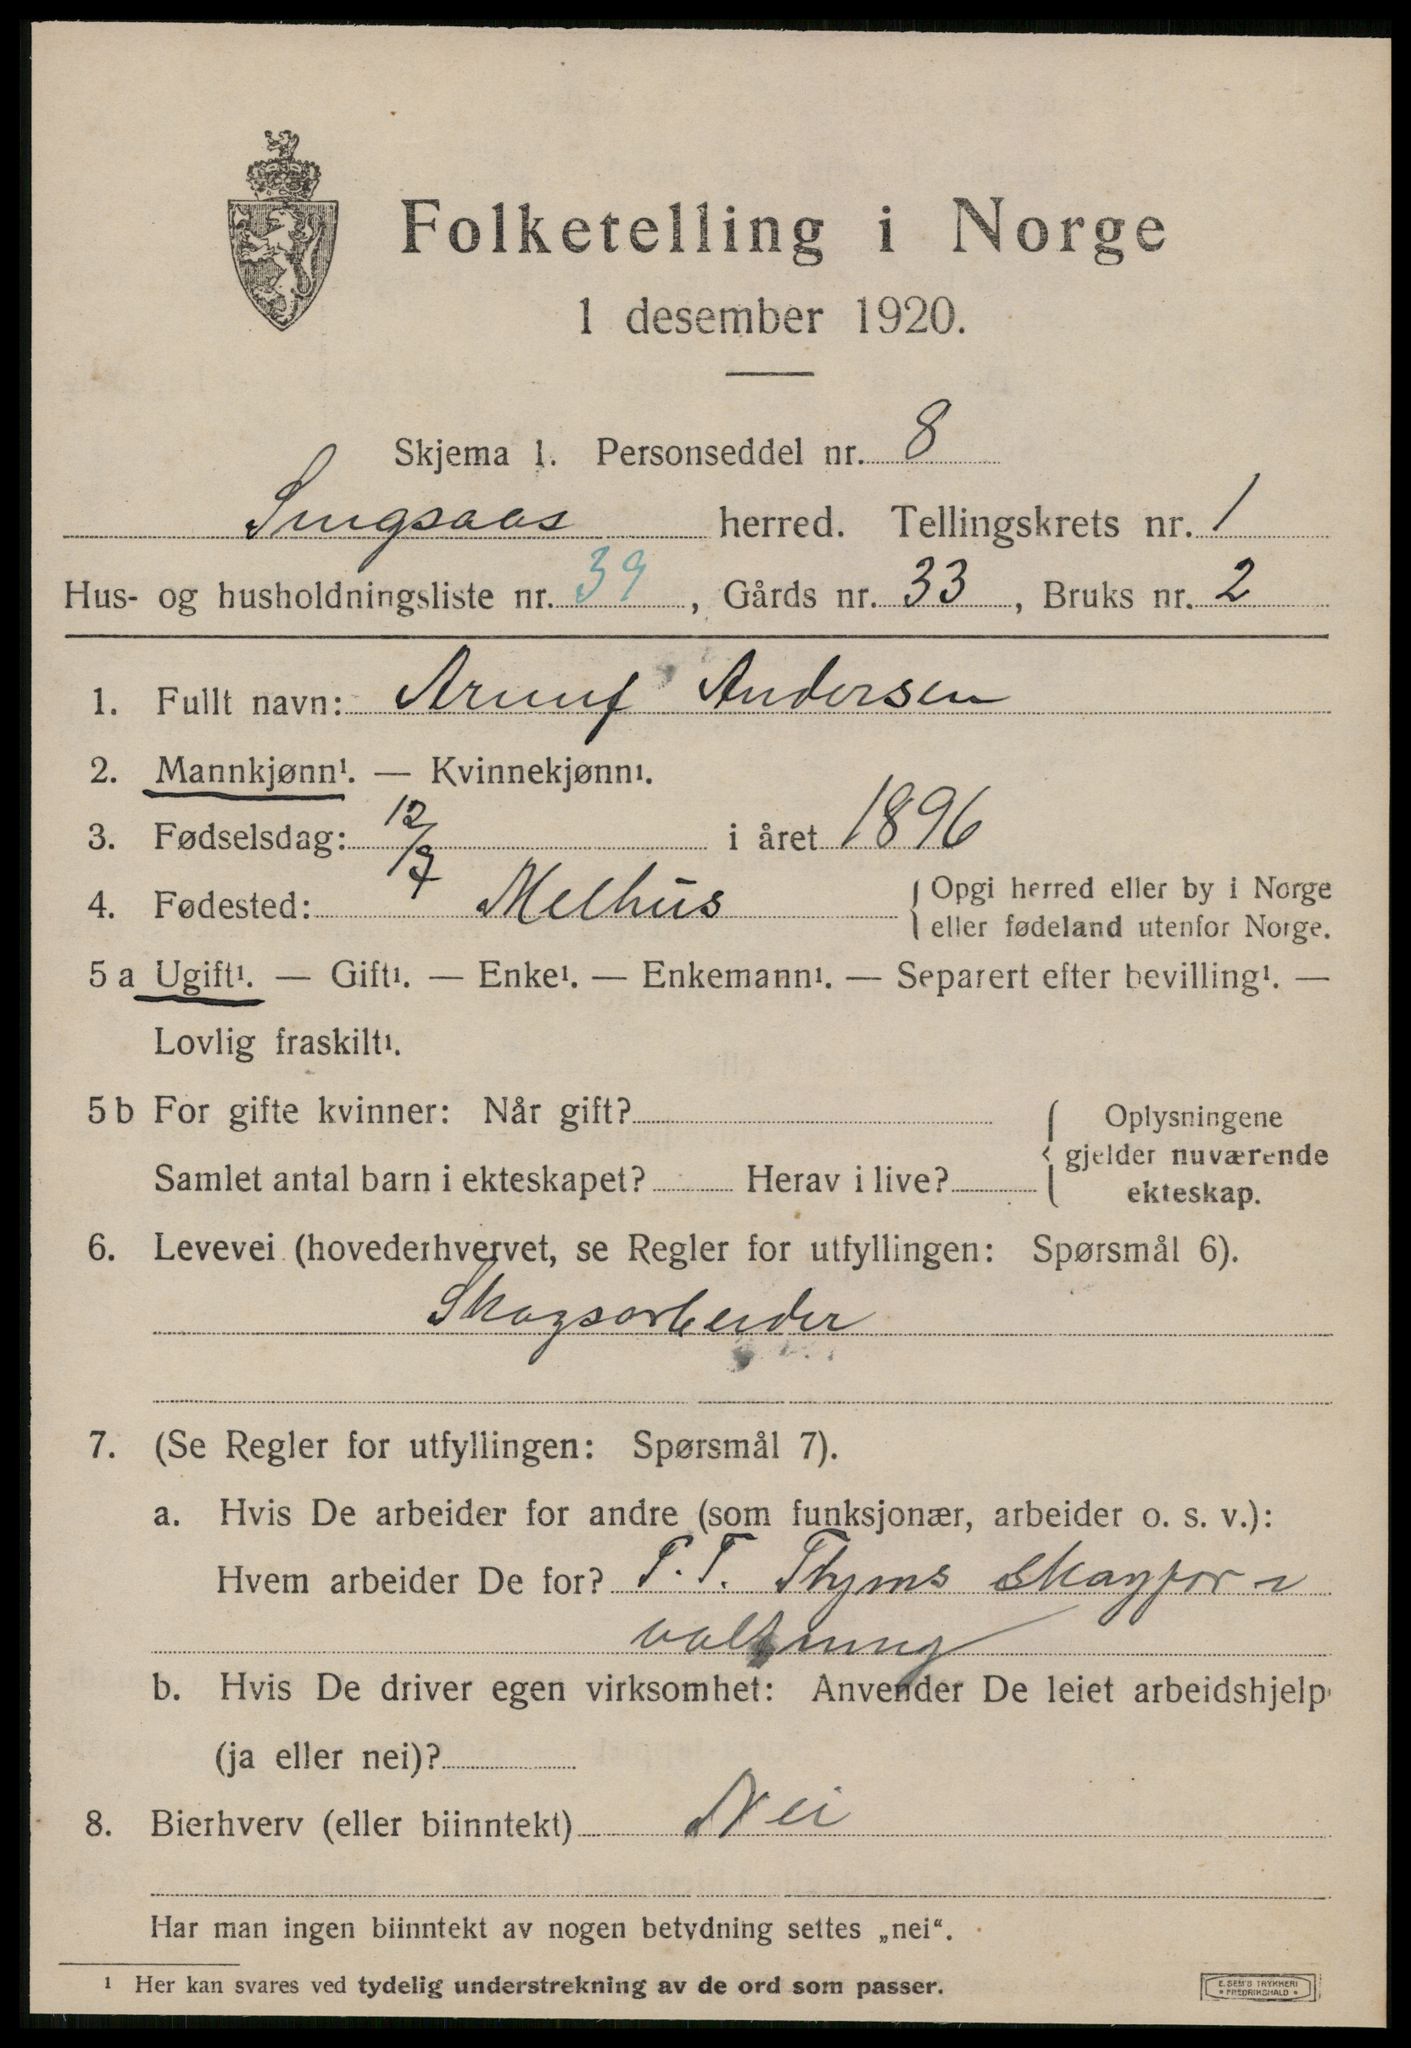 Folketelling i Norge
1 desember 1920.
Skjema 1. Personseddel nr. 8
Singsaas herred. Tellingskrets nr. 1
Hus- og husholdningsliste nr. 39, Gårds nr. 33, Bruks nr. 2
1. Fullt navn: Andersen
2. Mannkjønn¹. — Kvinnekjønn¹.
3. Fødselsdag: 12/7 i året 1896
4. Fødested: Melhus { Opgi herred eller by i Norge
eller fødeland utenfor Norge.
5 a Ugift¹. — Gift¹. — Enke¹. — Enkemann¹. — Separert efter bevilling¹. —
Lovlig fraskilt¹.
5 b For gifte kvinner: Når gift?
Samlet antal barn i ekteskapet? Herav i live?
{ Oplysningene
gjelder nuværende
ekteskap.
6. Levevei (hovederhvervet, se Regler for utfyllingen: Spørsmål 6).
Skogsarbeider
7. (Se Regler for utfyllingen: Spørsmål 7).
a. Hvis De arbeider for andre (som funksjonær, arbeider o. s. v.):
Hvem arbeider De for? T. T. Thyms skogfor-
valtning
b. Hvis De driver egen virksomhet: Anvender De leiet arbeidshjelp
(ja eller nei)?
8. Bierhverv (eller biinntekt) Nei
Har man ingen biinntekt av nogen betydning settes „nei“.
¹ Her kan svares ved tydelig understrekning av de ord som passer.
E. SEM'S TRYKKERI
• FREDRIKSHALD •